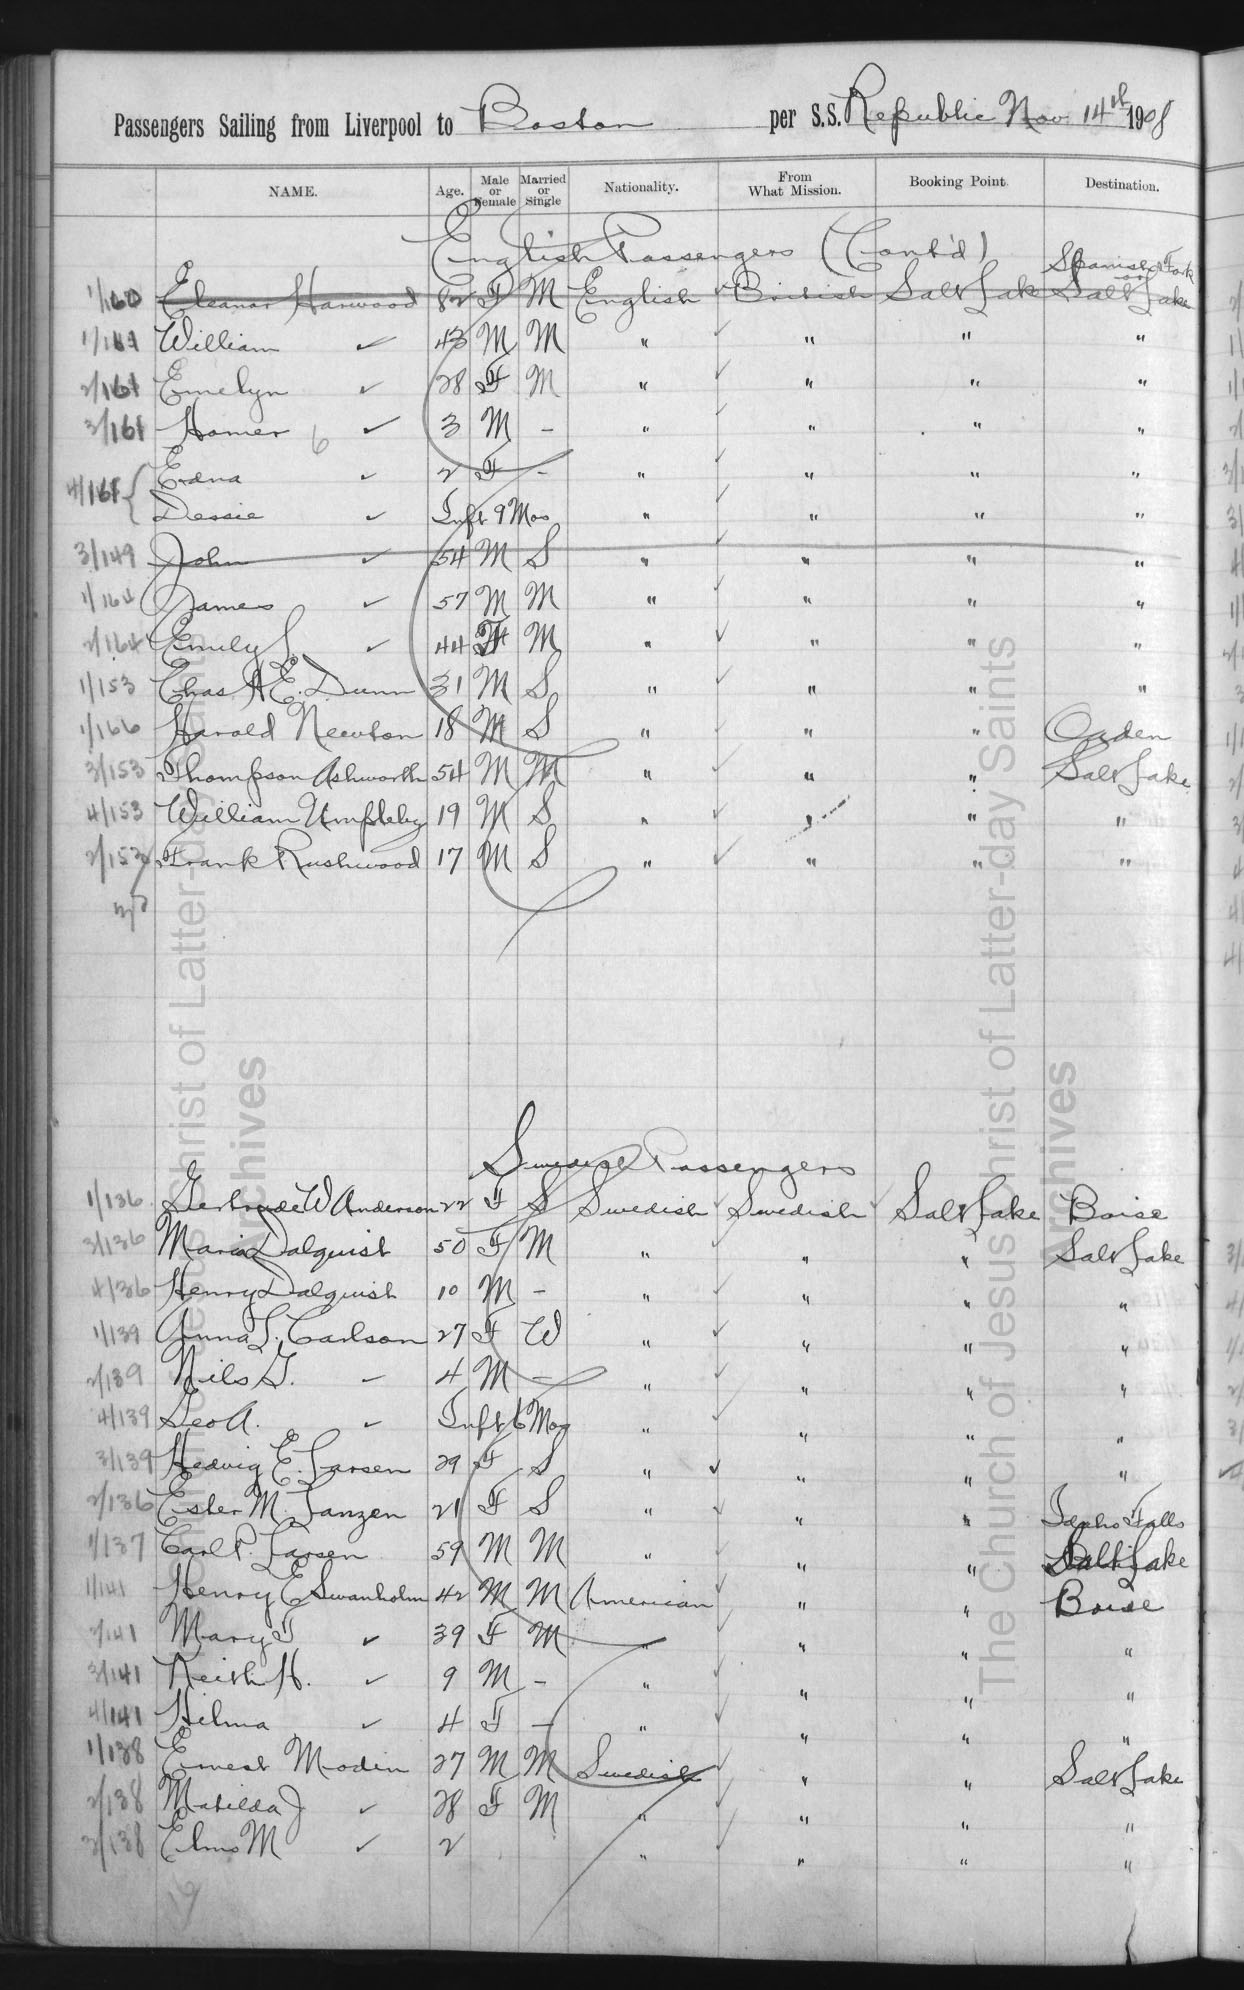 Passengers Sailing from Liverpool to Boston per S.S. Republic Nov 14th 1908
NAME. Age. Male or Female Married or Single Nationality. From What Mission. Booking Point. Destination.
English Passengers (Cont'd)
Spanish Fork or
1/160 Eleanor Harwood 82 F M English ✓ British Salt Lake Salt Lake
1/161 William ✓ 43 M M " ✓ " " "
2/161 Emelyn ✓ 28 F M " ✓ " " "
3/161 Homer 6 ✓ 3 M - " ✓ " " "
4/161 { Edna ✓ 2 F - " ✓ " " "
Dessie ✓ Inft 9 Mos " ✓ " " "
3/149 John ✓ 54 M S " ✓ " " "
1/164 James ✓ 57 M M " ✓ " " "
2/164 Emily S. ✓ 44 F M " ✓ " " "
1/153 Chas H E. Dunn 31 M S " ✓ " " "
1/166 Harold Newton 18 M S " ✓ " " Ogden
3/153 Thompson Ashworth 54 M M " ✓ " " Salt Lake
4/153 William Umpleby 19 M S " ✓ " " "
2/153 Frank Rushwood 17 M S " ✓ " " "
Swedish Passengers
1/136 Gertrude W Anderson 22 F S Swedish ✓ Swedish ✓ Salt Lake Boise
3/136 Maria Dalquist 50 F M " ✓ " " Salt Lake
4/136 Henry Dalquist 10 M - " ✓ " " "
1/139 Anna L. Carlson 27 F W " ✓ " " "
2/139 Nils G. - 4 M - " ✓ " " "
4/139 Geo A. ✓ Inft 6 Mos " ✓ " " "
3/139 Hedvig E. Larsen 29 F S " ✓ " " "
2/136 Ester M. Tanzen 21 F S " ✓ " " Idaho Falls
1/137 Carl P. Larsen 59 M M " ✓ " " Salt Lake
1/141 Henry E Swanholm 42 M M American ✓ " " Boise
2/141 Mary T ✓ 39 F M " ✓ " " "
3/141 Keith H. ✓ 9 M - " ✓ " " "
4/141 Hilma ✓ 4 F - " ✓ " " "
1/138 Ernest Modin 27 M M Swedish ✓ " " Salt Lake
2/138 Matilda J ✓ 28 F M " ✓ " " "
3/138 Elmo M ✓ 2 " ✓ " " "
The Church of Jesus Christ of Latter-day Saints
Archives